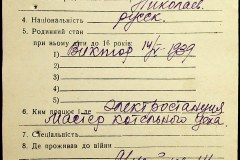 Николаев.
4. Національність русск.
5. Родинний стан
при ньому діти до 16 років:
1) Виктор 14/V 1939
2)
3)
4)
5)
6. Ким працює і де Электростанция
Мастер котельного цеха.
7. Спеціальність
8. Де проживав до війни